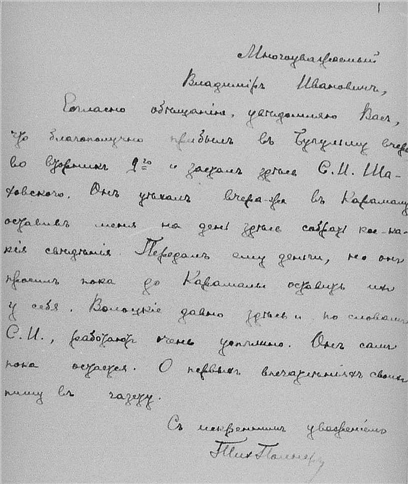 Многоуважаемый
Владиміръ Ивановичъ,
Согласно обѣщанію, увѣдомляю Васъ,
что благополучно прибылъ въ Бугульму вчера
во вторникъ 9го и засталъ здѣсь С. И. Ша-
ховского. Онъ уѣхалъ вчера-же въ Карамалу
оставивъ меня на день здѣсь собрать кое-ка-
кія свѣдѣнія. Передалъ ему деньги, но онъ
просилъ пока до Карамалы оставить ихъ
у себя. Волоцкіе давно здѣсь и по словамъ
С. И., работаютъ очень успѣшно. Онъ самъ
пока остается. О первыхъ впечатлѣніяхъ своихъ
пишу въ газету.
Съ искреннимъ уваженіемъ
Тих Полнеръ